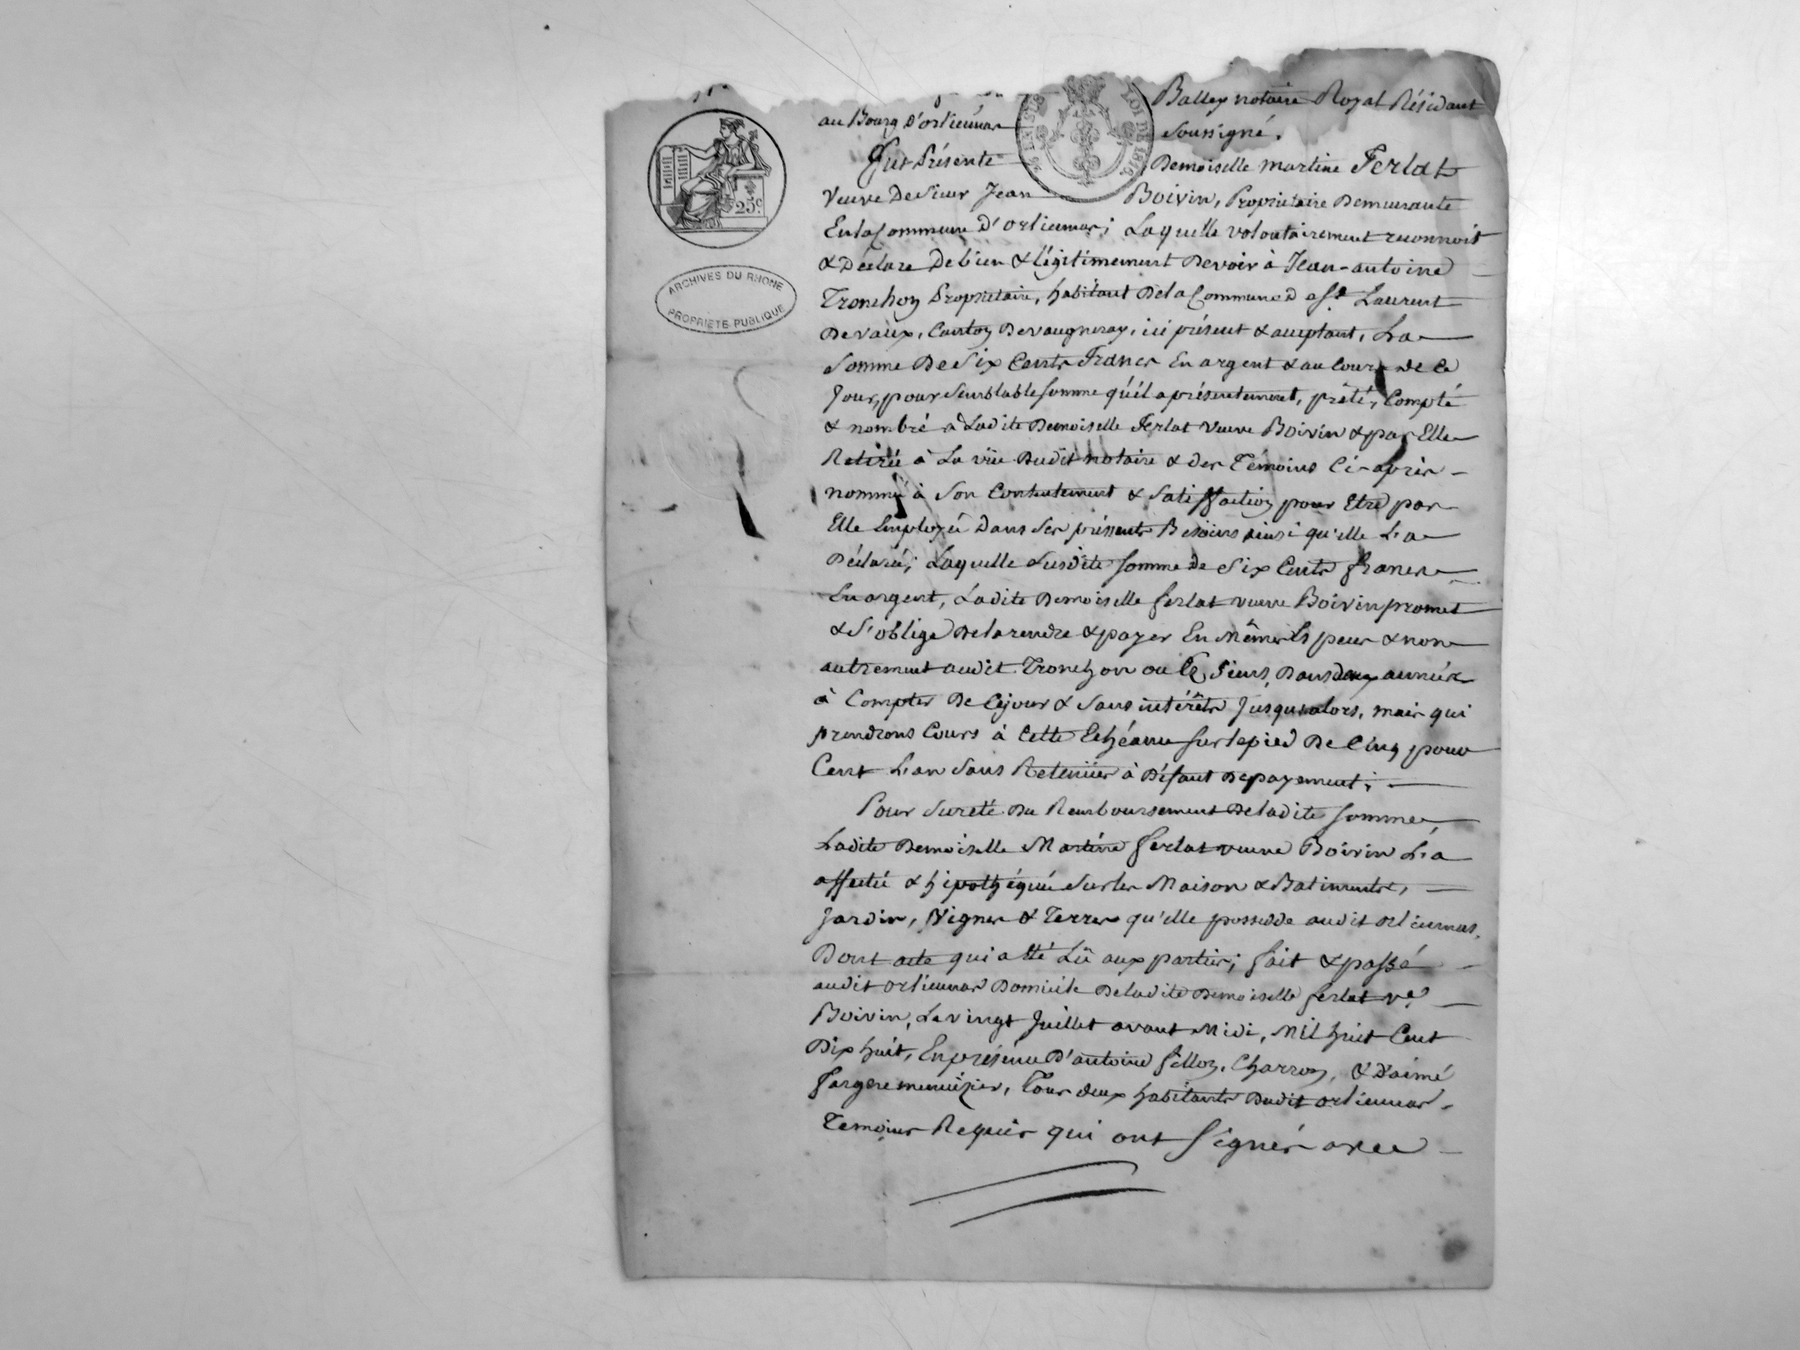 Balley notaire Royal Résidant
au Bourg d'orlienas soussigné.
Fut Présente Demoiselle martine Ferlat
Veuve De Sieur Jean Boivin, Propriétaire Demeurante
En la Commune d'orlienas; Laquelle volontairement reconnoit
& Déclare De bien & légitimement Devoir à Jean-antoine
Tronchon Propriétaire, habitant De la Commune de St. Laurent
De vaux, Canton De vaugneray, ici présent & acceptant, La
Somme De Six Cents Francs En argent & au Cours de Ce
Jour, pour Semblable somme qu'il a présentement, prêté, Compté
& nombré à Ladite Demoiselle Ferlat veuve Boivin & par Elle
Retirée à La vüe Dudit notaire & des Témoins Ci-après
nommé à Son Contentement & Satisffaction pour Etre par
Elle Employée Dans Ses présents Besoins ainsi qu'elle L'a
Déclaré; Laquelle Susdite somme de Six Cents francs
En argent, Ladite Demoiselle ferlat veuve Boivin promet
& S'oblige De la rendre & payer En Mêmes Especes & non
autrement audit Tronchon ou les Siens, Dans deux années
à Compter De Ce jour & Sans intérêts Jusqu'alors, mais qui
prendrons Cours à Cette Echéance sur le pied De Cinq pour
Cent L'an Sans Retenüe à Défaut De payement;
Pour Sureté Du Remboursement De ladite somme,
Ladite Demoiselle Martine ferlat veuve Boivin L'a
affecté & hipothéqué Sur les Maison & Batiments,
Jardin, Vignes & Terres qu'elle possedde audit orlienas,
Dont acte qui a été Lû aux parties; fait & passé
audit orlienas Domicile De ladite Demoiselle ferlat ve.
Boivin, Le vingt Juillet avant Midi, Mil huit Cent
Dix huit, En présence D'antoine fillon, Charron, & D'aimé
fargere menuizier, Tous deux habitants Dudit orlienas,
Temoins Requis qui ont Signés avec
25c
ARCHIVES DU RHONE
PROPRIETE PUBLIQUE
LOI DE 1816